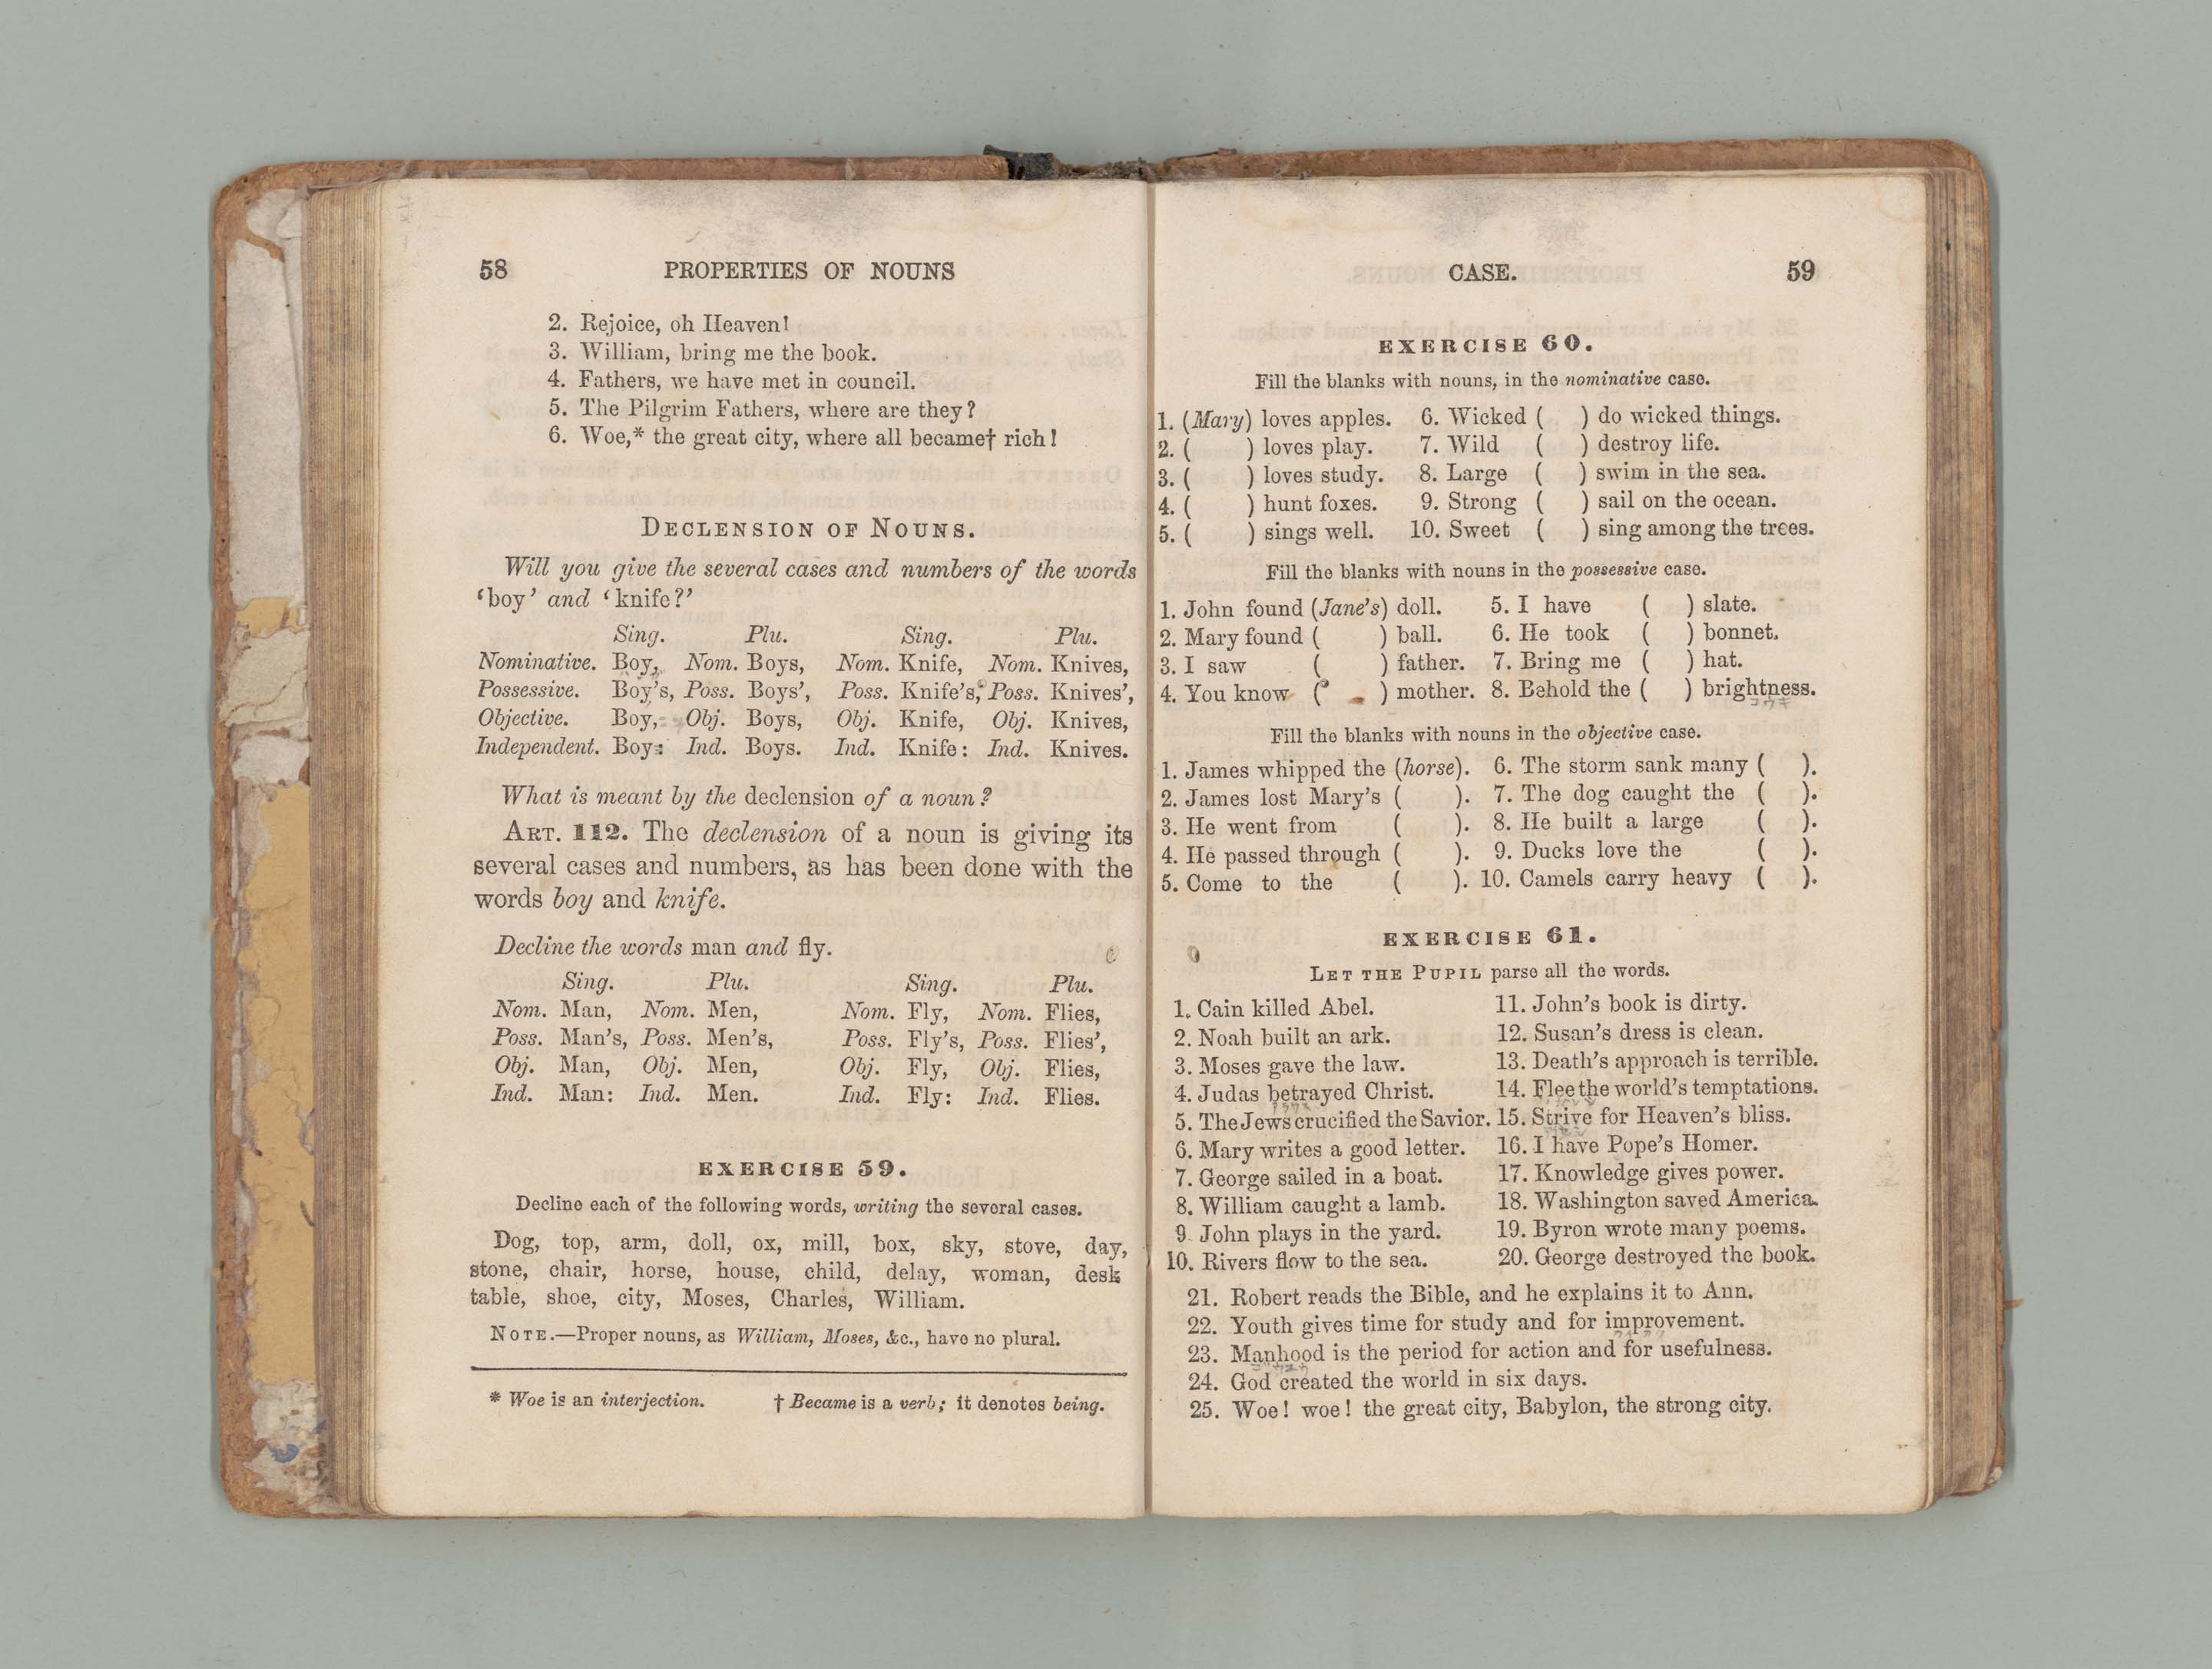 58 PROPERTIES OF NOUNS
2. Rejoice, oh Heaven!
3. William, bring me the book.
4. Fathers, we have met in council.
5. The Pilgrim Fathers, where are they?
6. Woe,* the great city, where all became† rich!
DECLENSION OF NOUNS.
Will you give the several cases and numbers of the words
‘boy’ and ‘knife?’
Sing. Plu. Sing. Plu.
Nominative. Boy, Nom. Boys, Nom. Knife, Nom. Knives,
Possessive. Boy’s, Poss. Boys’, Poss. Knife’s, Poss. Knives’,
Objective. Boy, Obj. Boys, Obj. Knife, Obj. Knives,
Independent. Boy: Ind. Boys. Ind. Knife: Ind. Knives.
What is meant by the declension of a noun?
ART. 112. The declension of a noun is giving its
several cases and numbers, as has been done with the
words boy and knife.
Decline the words man and fly.
Sing. Plu. Sing. Plu.
Nom. Man, Nom. Men, Nom. Fly, Nom. Flies,
Poss. Man’s, Poss. Men’s, Poss. Fly’s, Poss. Flies’,
Obj. Man, Obj. Men, Obj. Fly, Obj. Flies,
Ind. Man: Ind. Men. Ind. Fly: Ind. Flies.
EXERCISE 59.
Decline each of the following words, writing the several cases.
Dog, top, arm, doll, ox, mill, box, sky, stove, day,
stone, chair, horse, house, child, delay, woman, desk
table, shoe, city, Moses, Charles, William.
NOTE.—Proper nouns, as William, Moses, &c., have no plural.
* Woe is an interjection. † Became is a verb; it denotes being.
CASE. 59
EXERCISE 60.
Fill the blanks with nouns, in the nominative case.
1. (Mary) loves apples. 6. Wicked ( ) do wicked things.
2. ( ) loves play. 7. Wild ( ) destroy life.
3. ( ) loves study. 8. Large ( ) swim in the sea.
4. ( ) hunt foxes. 9. Strong ( ) sail on the ocean.
5. ( ) sings well. 10. Sweet ( ) sing among the trees.
Fill the blanks with nouns in the possessive case.
1. John found (Jane’s) doll. 5. I have ( ) slate.
2. Mary found ( ) ball. 6. He took ( ) bonnet.
3. I saw ( ) father. 7. Bring me ( ) hat.
4. You know ( ) mother. 8. Behold the ( ) brightness.
Fill the blanks with nouns in the objective case.
1. James whipped the (horse). 6. The storm sank many ( ).
2. James lost Mary’s ( ). 7. The dog caught the ( ).
3. He went from ( ). 8. He built a large ( ).
4. He passed through ( ). 9. Ducks love the ( ).
5. Come to the ( ). 10. Camels carry heavy ( ).
EXERCISE 61.
LET THE PUPIL parse all the words.
1. Cain killed Abel. 11. John’s book is dirty.
2. Noah built an ark. 12. Susan’s dress is clean.
3. Moses gave the law. 13. Death’s approach is terrible.
4. Judas betrayed Christ. 14. Flee the world’s temptations.
5. The Jews crucified the Savior. 15. Strive for Heaven’s bliss.
6. Mary writes a good letter. 16. I have Pope’s Homer.
7. George sailed in a boat. 17. Knowledge gives power.
8. William caught a lamb. 18. Washington saved America.
9. John plays in the yard. 19. Byron wrote many poems.
10. Rivers flow to the sea. 20. George destroyed the book.
21. Robert reads the Bible, and he explains it to Ann.
22. Youth gives time for study and for improvement.
23. Manhood is the period for action and for usefulness.
24. God created the world in six days.
25. Woe! woe! the great city, Babylon, the strong city.